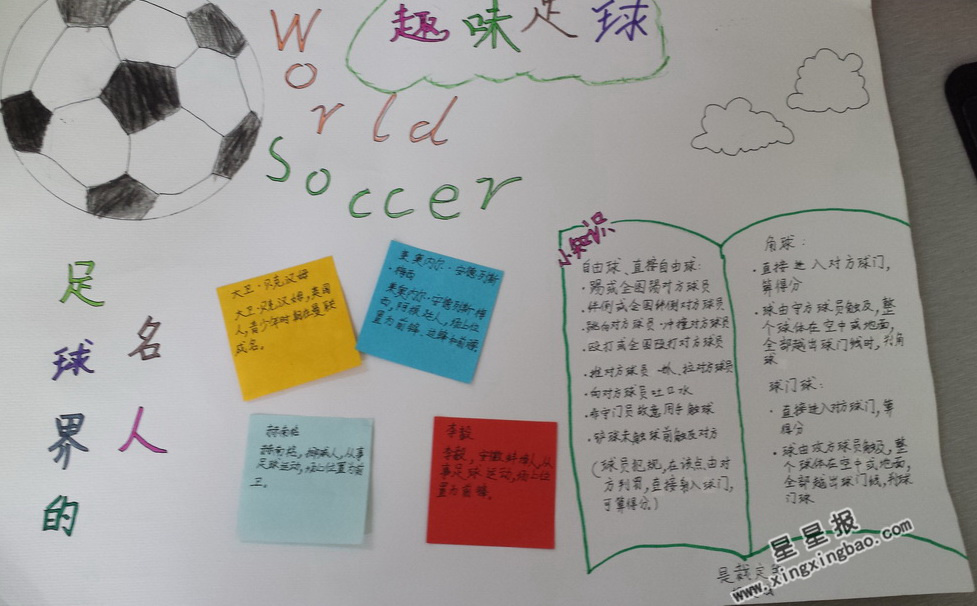 趣味足球
World
Soccer
足球界的
名人
大卫·贝克汉姆
大卫·贝克汉姆,英国
人,青少年时期在曼联
成名。
莱奥内尔·安德列斯
·梅西
莱奥内尔·安德列斯·梅
西,阿根廷人,场上位
置为前锋、边锋和前腰
人,从事
足球运动,场上位置为前
卫。
李毅
李毅,安徽蚌埠人,从
事足球运动,场上位
置为前锋。
小知识
自由球、直接自由球:
·踢或企图踢对方球员
·绊倒或企图绊倒对方球员
·跳向对方球员·冲撞对方球员
·殴打或企图殴打对方球员
·推对方球员 ·拉对方球员
·向对方球员吐口水
·守门员故意用手触球
·铲球未触球前触及对方
(球员犯规,在该点由对
方判罚,直接射入球门,
可算得分。)
角球:
·直接进入对方球门,
算得分
·球由守方球员触及,整
个球体在空中或地面,
全部越出球门线时,判角
球
球门球:
·直接进入对方球门,算
得分
·球由攻方球员触及,整
个球体在空中或地面,
全部越出球门线,判球
门球
星星报
www.xingxingbao.com